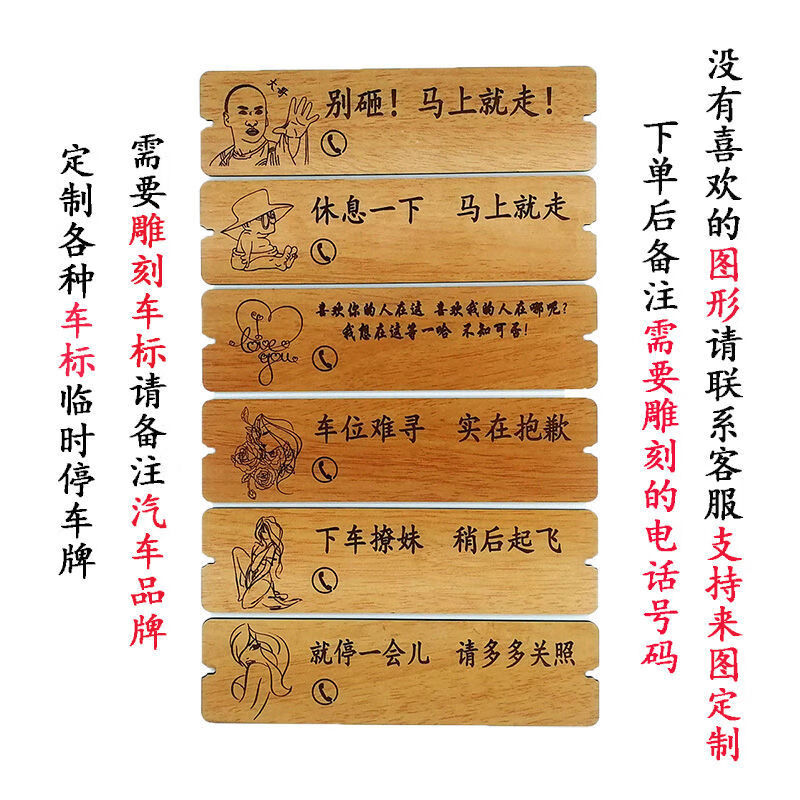 没有喜欢的图形请联系客服支持来图定制
下单后备注需要雕刻的电话号码
需要雕刻车标请备注汽车品牌
定制各种车标临时停车牌
大哥
别砸！马上就走！
休息一下 马上就走
I love you
喜欢你的人在这 喜欢我的人在哪呢?
我想在这等一哈 不知可否!
车位难寻 实在抱歉
下车撩妹 稍后起飞
就停一会儿 请多多关照